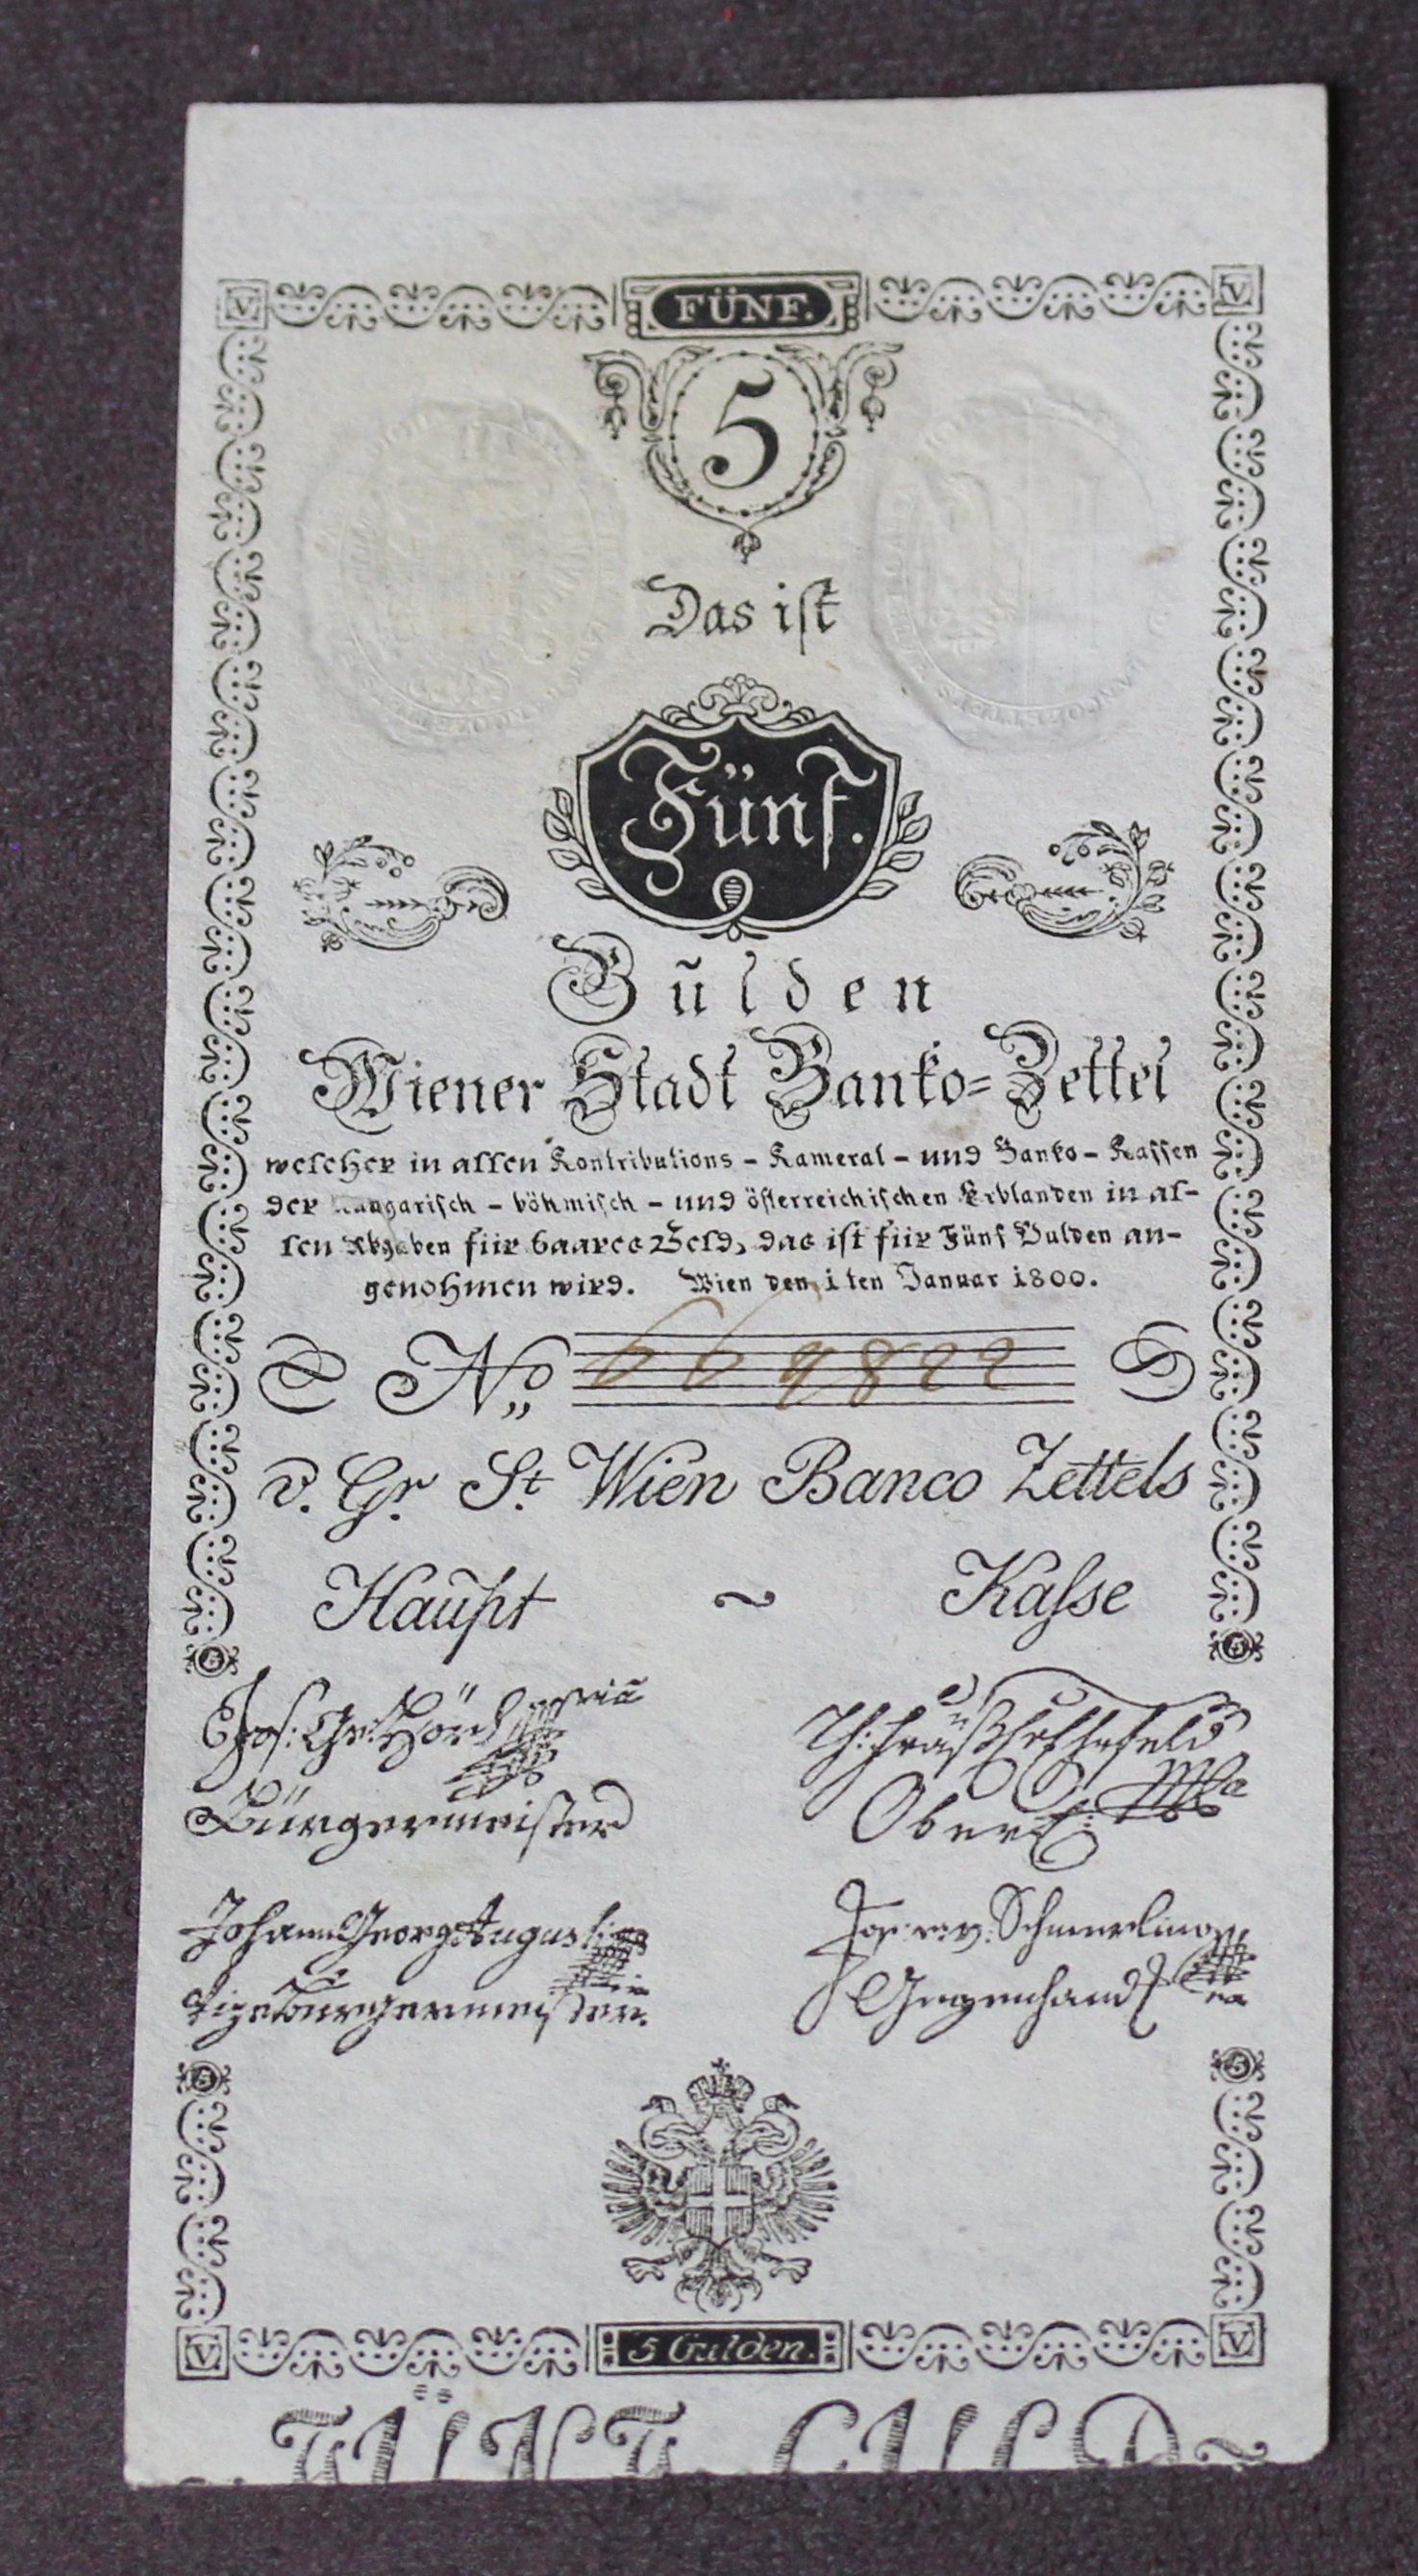 V FÜNF. V
5
Das ist
Fünf.
Gulden
Wiener Stadt Banko=Zettel
welcher in allen Kontributions - Kameral - und Banko - Kassen
der hungarisch - böhmisch - und österreichischen Erblanden in al-
len Abgaben für baares Geld, das ist für Fünf Gulden an-
genohmen wird. Wien den 1ten Januar 1800.
No
v. Gr. St. Wien Banco Zettels
Haupt ~ Kasse
Bürgermeister
Johann Georg Augusti
Schmerling
Vizebürgermeister.
V 5 Gulden. V
FÜNF GULD